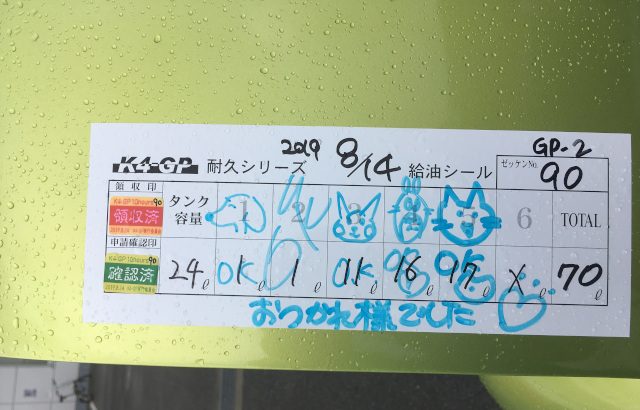 2019 8/14 GP-2
K4-GP 耐久シリーズ 給油シール ゼッケンNo. 90
領収印 タンク容量 1 2 3 4 5 6 TOTAL
K4-GP 10hours 90
領収済
申請確認印
K4-GP 10hours 90
確認済
24ℓ OK ℓ 1 ℓ OK ℓ 16 ℓ 17 ℓ X ℓ 70ℓ
おつかれ様でした